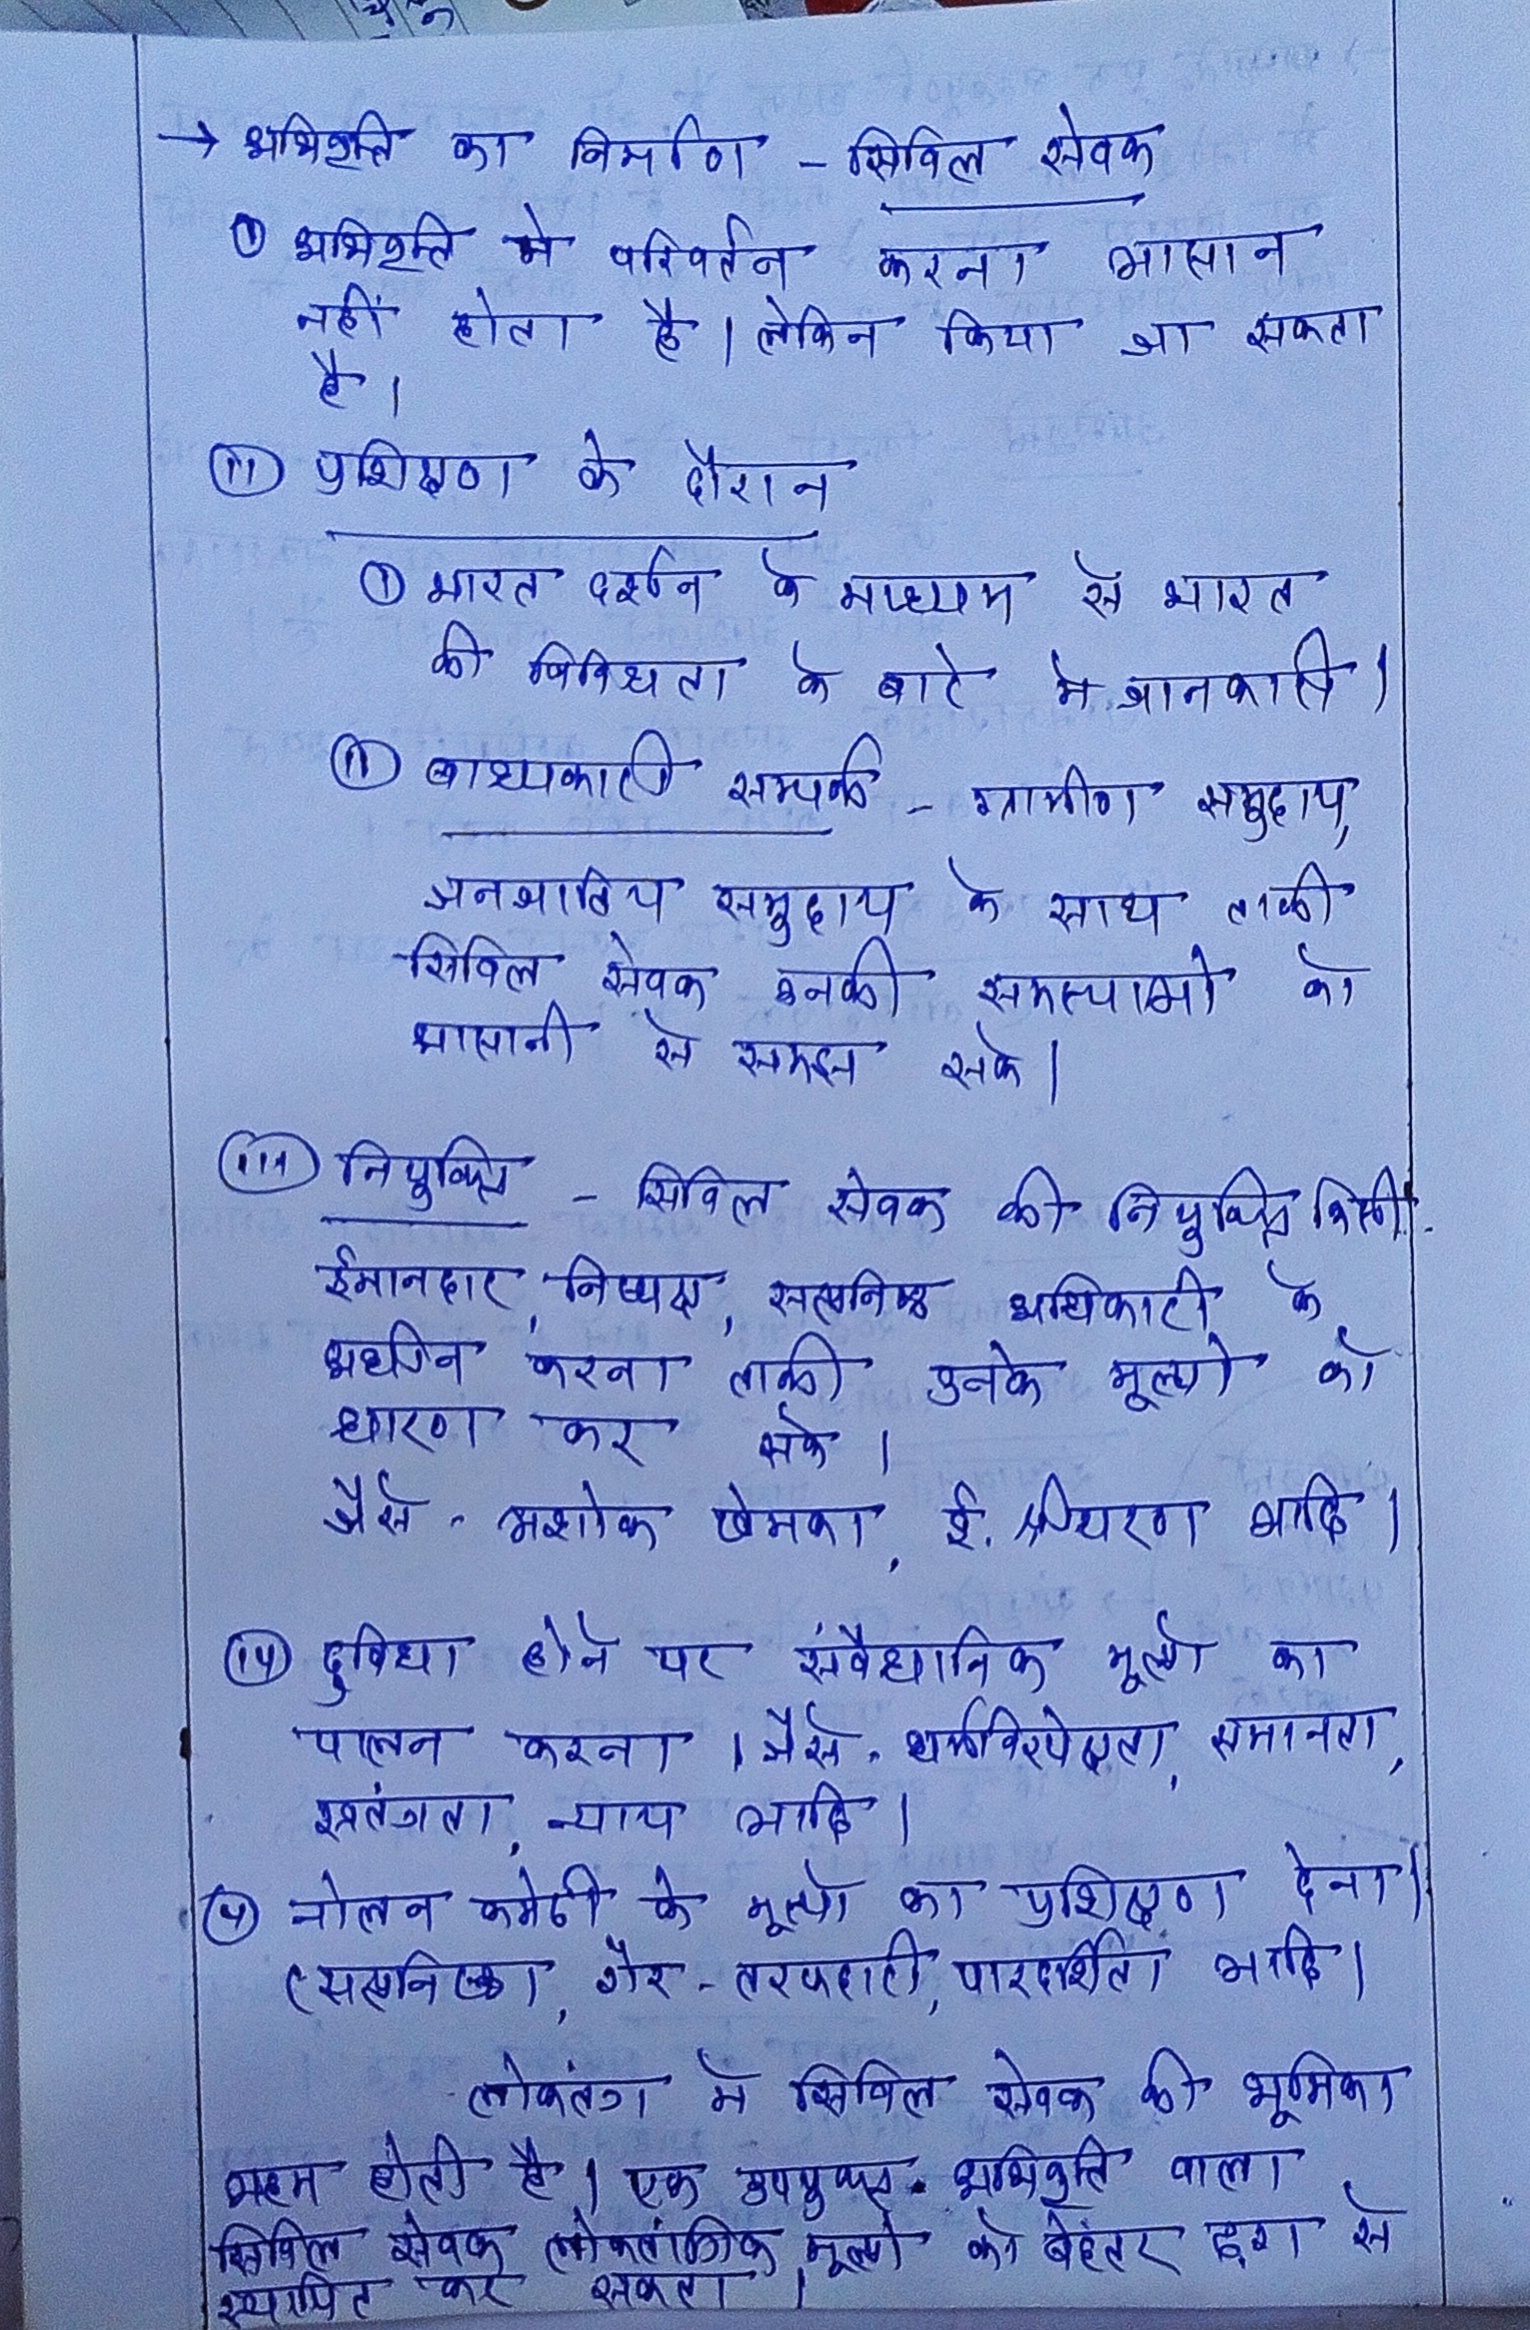 → अभिवृत्ति का निर्माण - सिविल सेवक
① अभिवृत्ति मे परिवर्तन करना आसान
नहीं होता है। लेकिन किया जा सकता
है।
(ii) प्रशिक्षण के दौरान
① भारत दर्शन के माध्यम से भारत
की विविधता के बारे मे जानकारी।
(ii) बाध्यकारी सम्पर्क - ग्रामीण समुदाय,
जनजातिय समुदाय के साथ ताकी
सिविल सेवक उनकी समस्याओ को
आसानी से समझ सके।
(iii) नियुक्ति - सिविल सेवक की नियुक्ति किसी
ईमानदार, निष्पक्ष, सत्यनिष्ठ अधिकारी के
अधीन करना ताकी उनके मूल्यो को
धारण कर सके।
जैसे - अशोक खेमका, ई. श्रीधरण आदि।
(iv) दुविधा होने पर संवैधानिक मूल्यो का
पालन करना। जैसे - धर्मनिरपेक्षता, समानता,
स्वतंत्रता, न्याय आदि।
(v) नोलन कमेटी के मूल्यो का प्रशिक्षण देना।
(सत्यनिष्ठा, गैर-तरफदारी, पारदर्शिता आदि।
लोकतंत्र मे सिविल सेवक की भूमिका
अहम होती है। एक उपयुक्त अभिवृत्ति वाला
सिविल सेवक लोकतांत्रिक मूल्यो को बेहतर ढंग से
स्थापित कर सकता।